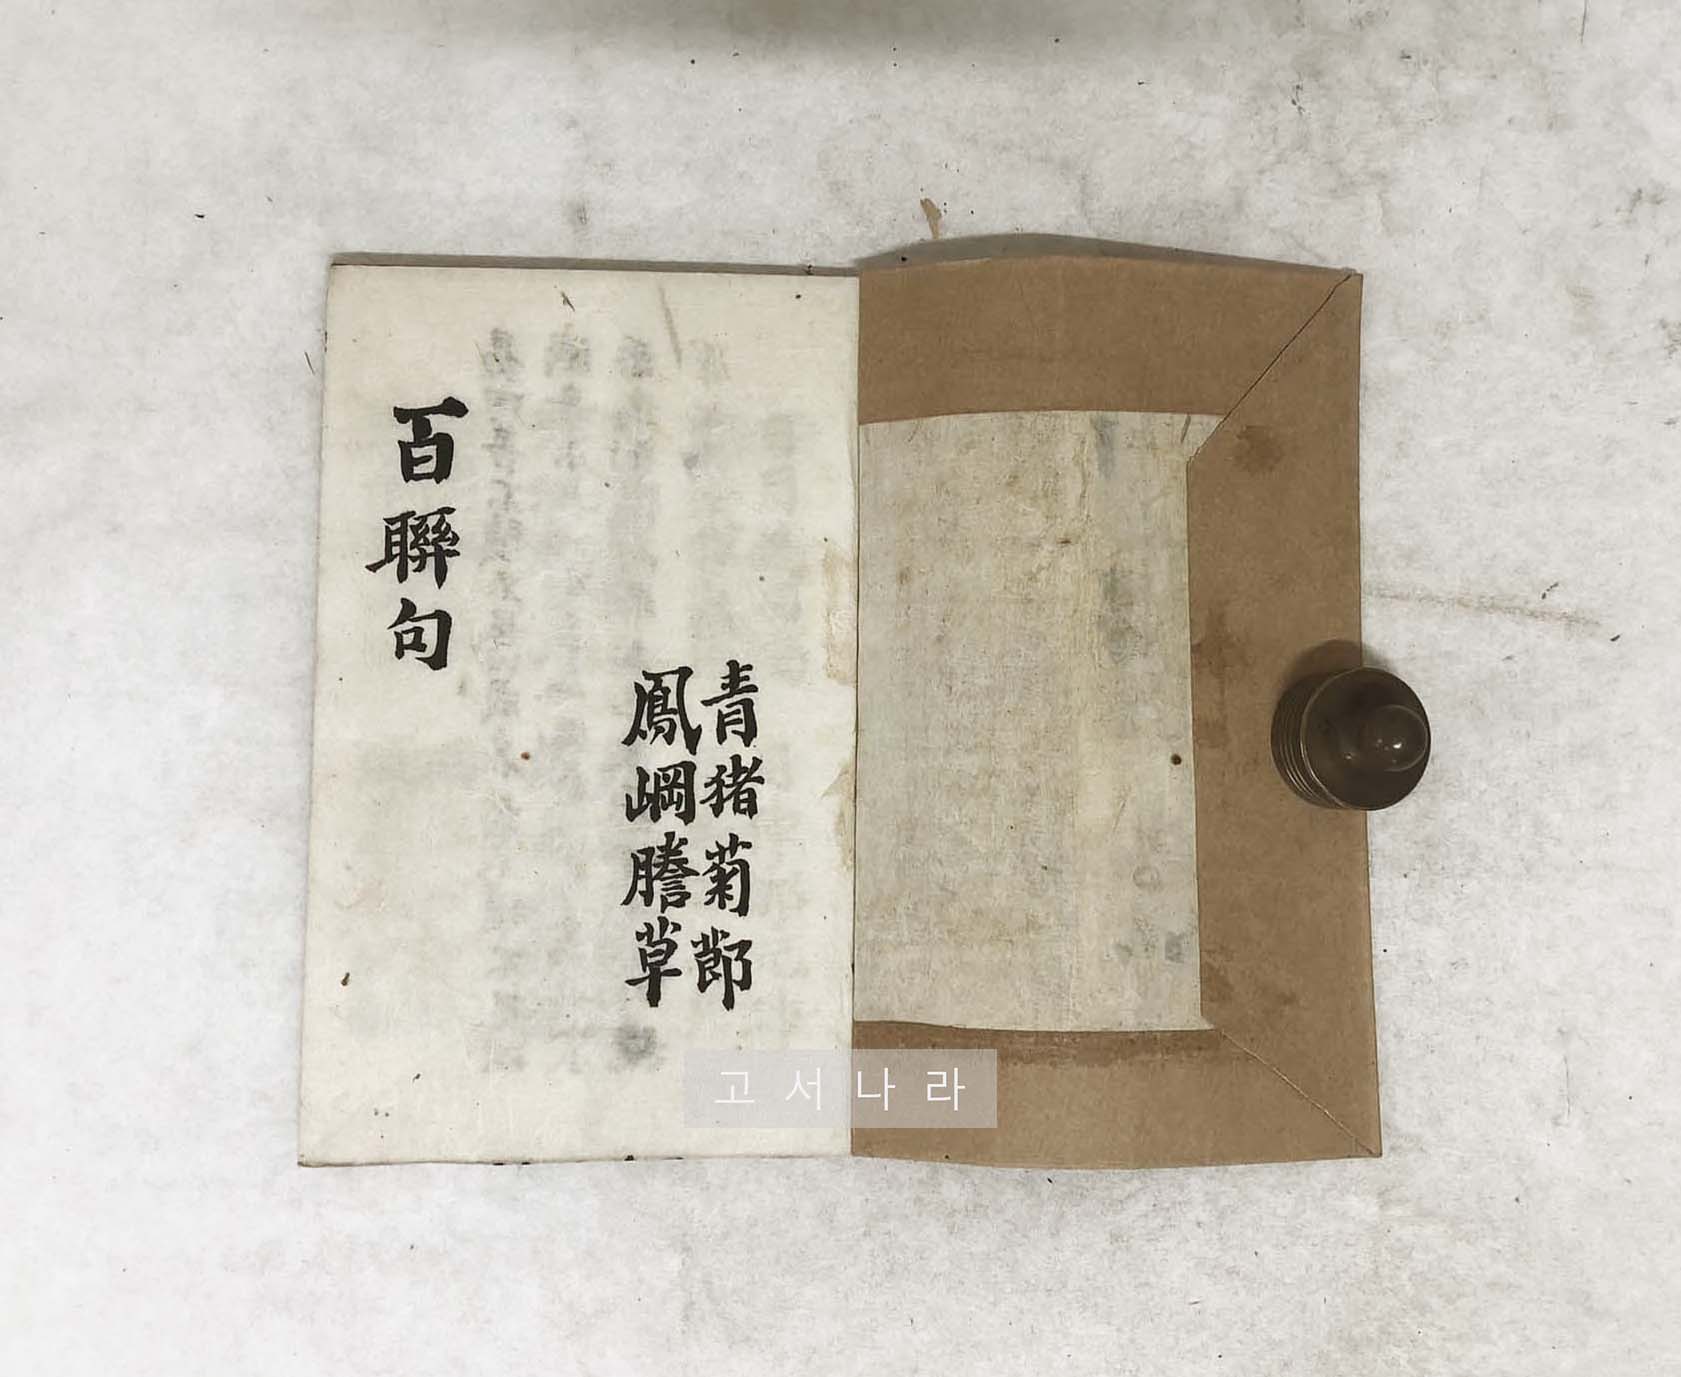 青猪菊節
鳳崗謄草
百聯句
고서나라